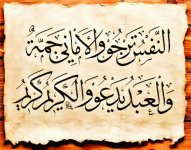 النَّفْسُ تَرْجُو وَالأَمَانِي جَمَّةٌ
وَالعَبْدُ يَدْعُو وَالكَرِيمُ كَرِيمُ